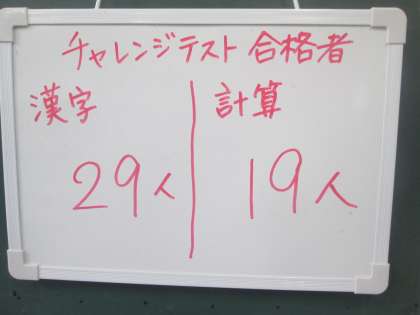 チャレンジテスト 合格者
漢字
29人
計算
19人